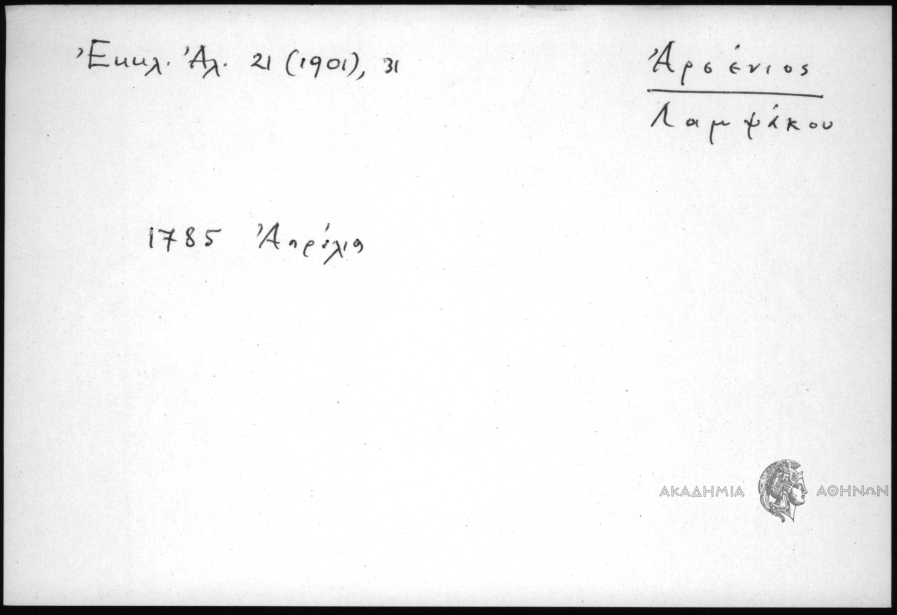 Ἐκκλ. Ἀλ. 21 (1901), 31
Ἀρσένιος
Λαμψάκου
1785 Ἀπρίλιο
ΑΚΑΔΗΜΙΑ ΑΘΗΝΩΝ